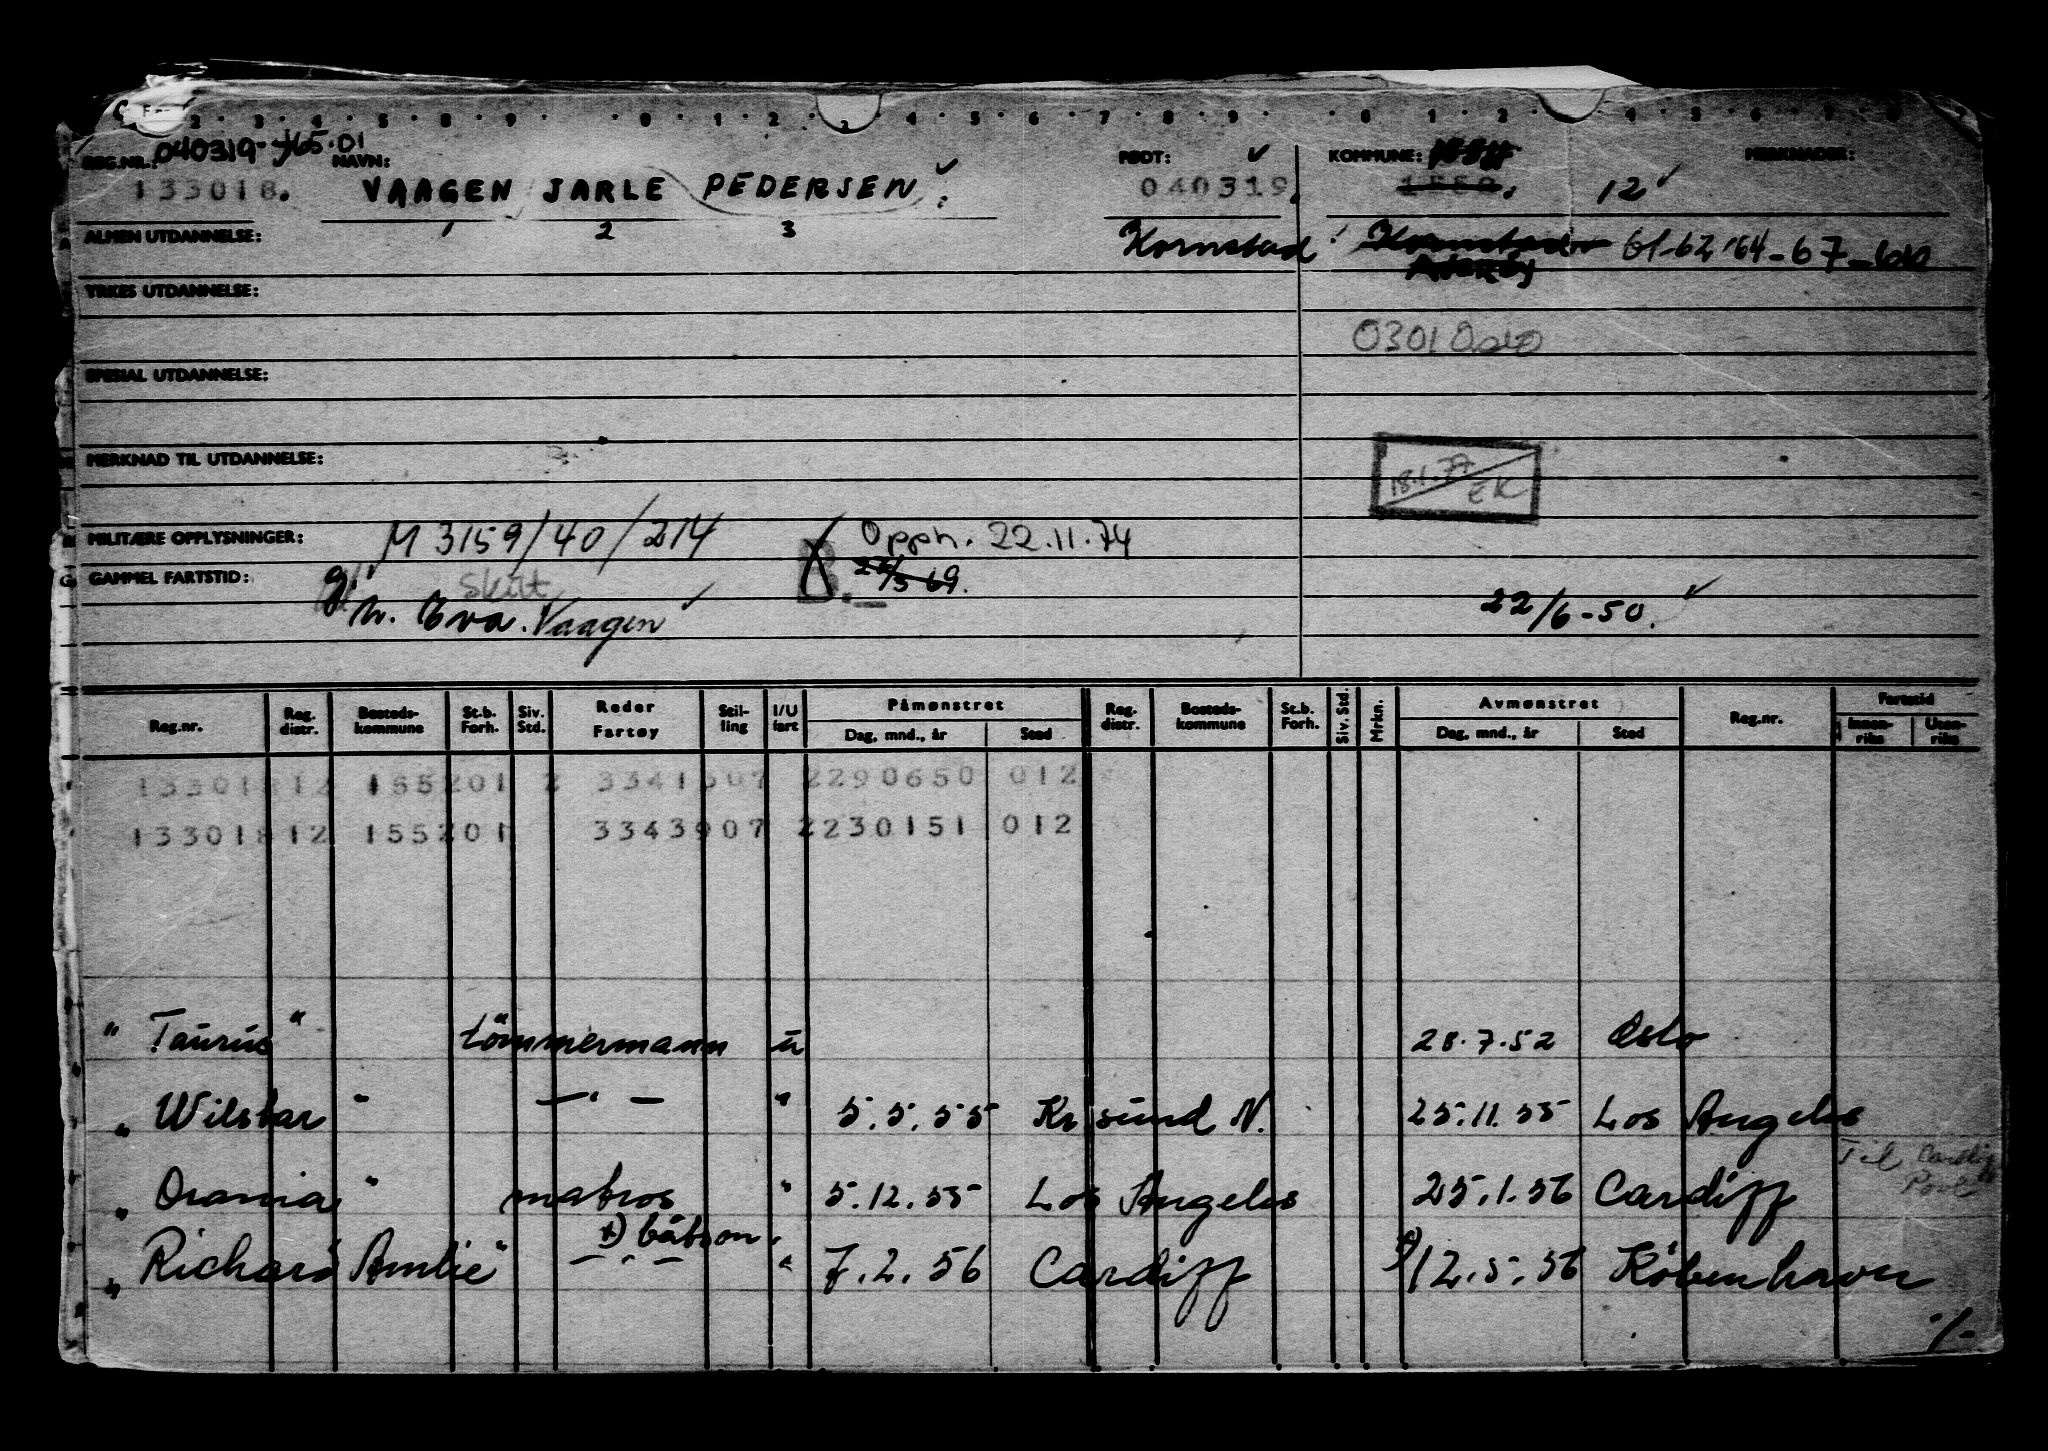 REG.NR.: 040319- 465.01 NAVN: FØDT: KOMMUNE: MERKNADER:
133018. VAAGEN JARLE PEDERSEN 040319. 12
1 2 3
ALMEN UTDANNELSE: Kornstad Kornstad 61-62 '64-67-
Averøy
YRKES UTDANNELSE:
0301 Oslo
SPESIAL UTDANNELSE:
MERKNAD TIL UTDANNELSE:
18.1.77 EK
MILITÆRE OPPLYSNINGER: M 3159/40/214 Opph. 22.11.74
GAMMEL FARTSTID: g. skilt 8.
h. Eva Vaagen 22/6-50.
Reg.nr. Reg. distr. Bosteds-kommune St.b. Forh. Siv. Std. Reder Fartøy Stil-ling I/U fart Påmønstret Dag, mnd., år Sted Reg. distr. Bosteds-kommune St.b. Forh. Siv. Std. Mrkn. Avmønstret Dag, mnd., år Sted Reg.nr. Fartstid Innen-riks Uten-riks
133018 12 155201 2 3341307 2290650 012
133018 12 155201 3343907 2230151 012
" Taurus " tömmermann u 28.7.52 Oslo
" Wilstar " — " — " 5.5.55 Kr sund N. 25.11.55 Los Angeles
Til Cardiff
" Orania " matros " 5.12.55 Los Angeles 25.1.56 Cardiff
x) båtson
" Richard Amlie " — " — " 7.2.56 Cardiff x) 12.5.56 København
-/-